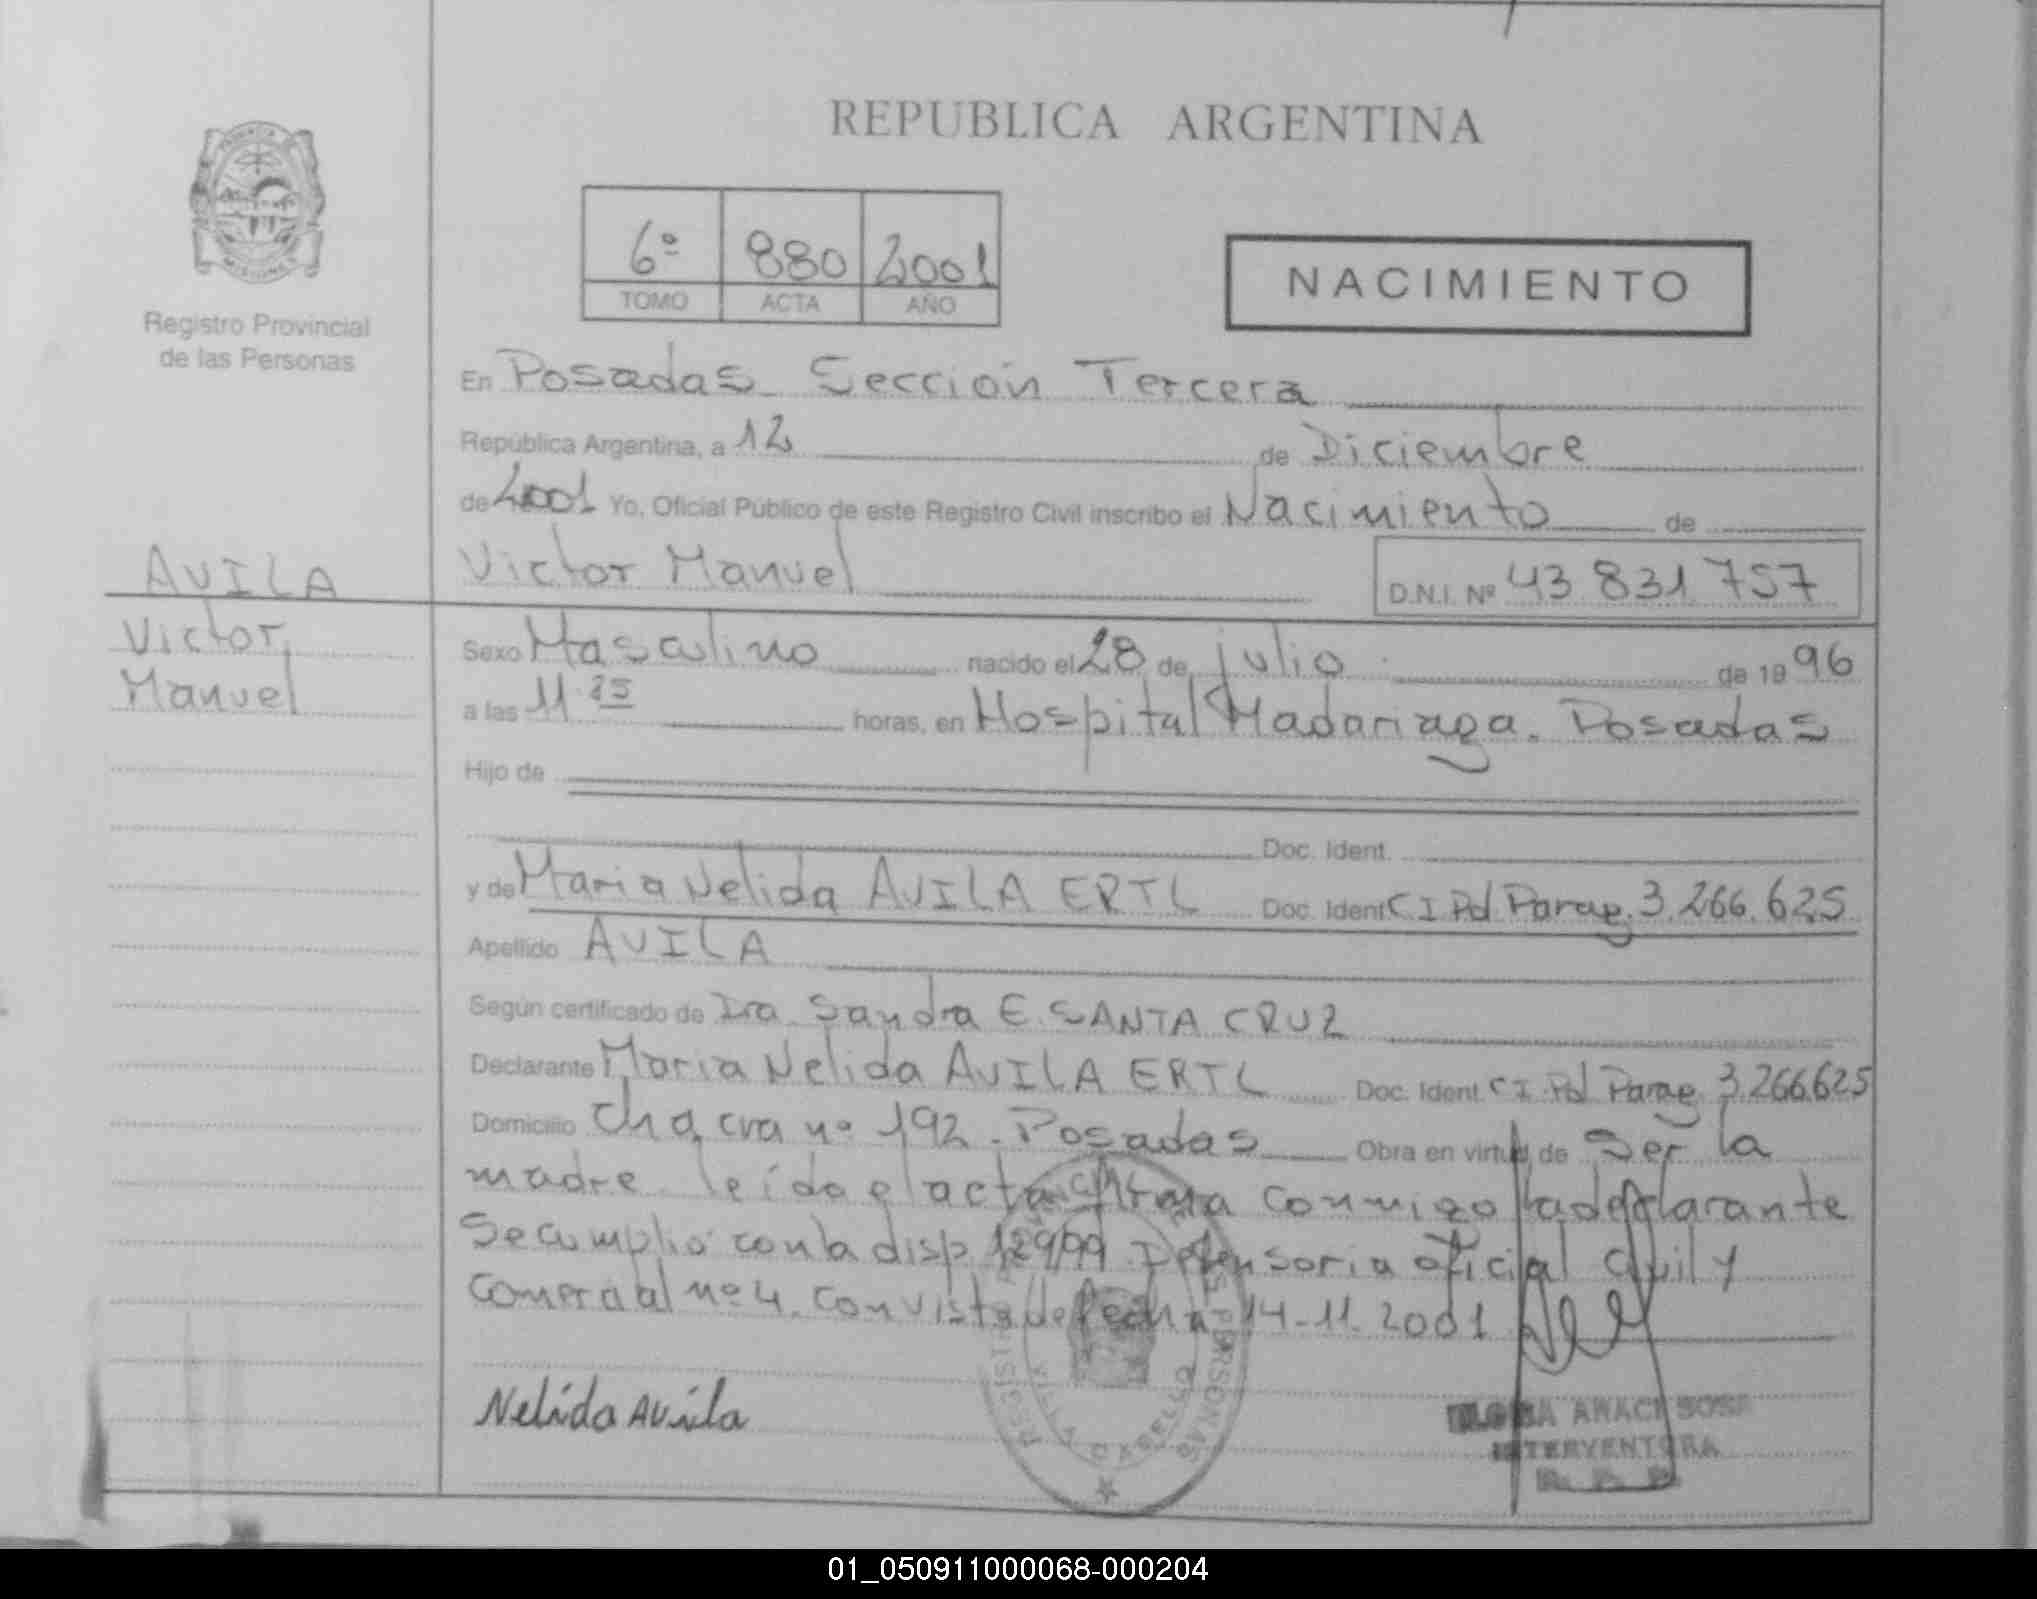 REPUBLICA ARGENTINA
PROVINCIA
MISIONES
Registro Provincial
de las Personas
6º 880 2001
TOMO ACTA AÑO
NACIMIENTO
En Posadas Sección Tercera
República Argentina, a 12 de Diciembre
de 2001 Yo, Oficial Público de este Registro Civil inscribo el Nacimiento de
Victor Manuel D.N.I. Nº 43 831 757
AVILA
Victor
Manuel
Sexo Masculino nacido el 28 de julio de 19 96
a las 11 25 horas, en Hospital Madariaga. Posadas
Hijo de
Doc. Ident.
y de Maria Nelida AVILA ERTL Doc. Ident C I Pol Parag. 3.266.625
Apellido AVILA
Según certificado de Dra. Sandra E. SANTA CRUZ
Declarante Maria Nelida AVILA ERTL Doc. Ident. C I. Pol Parag. 3.266.625
Domicilio Chacra nº 192 - Posadas Obra en virtud de Ser la
madre leída el acta firma conmigo la declarante
Se cumplio con la disp. 129/99 Defensoria oficial Civil y
Comercial nº 4. Con vista de fecha 14-11.2001
Nelida Avila
ANACI SOSA
INTERVENTORA
01_050911000068-000204